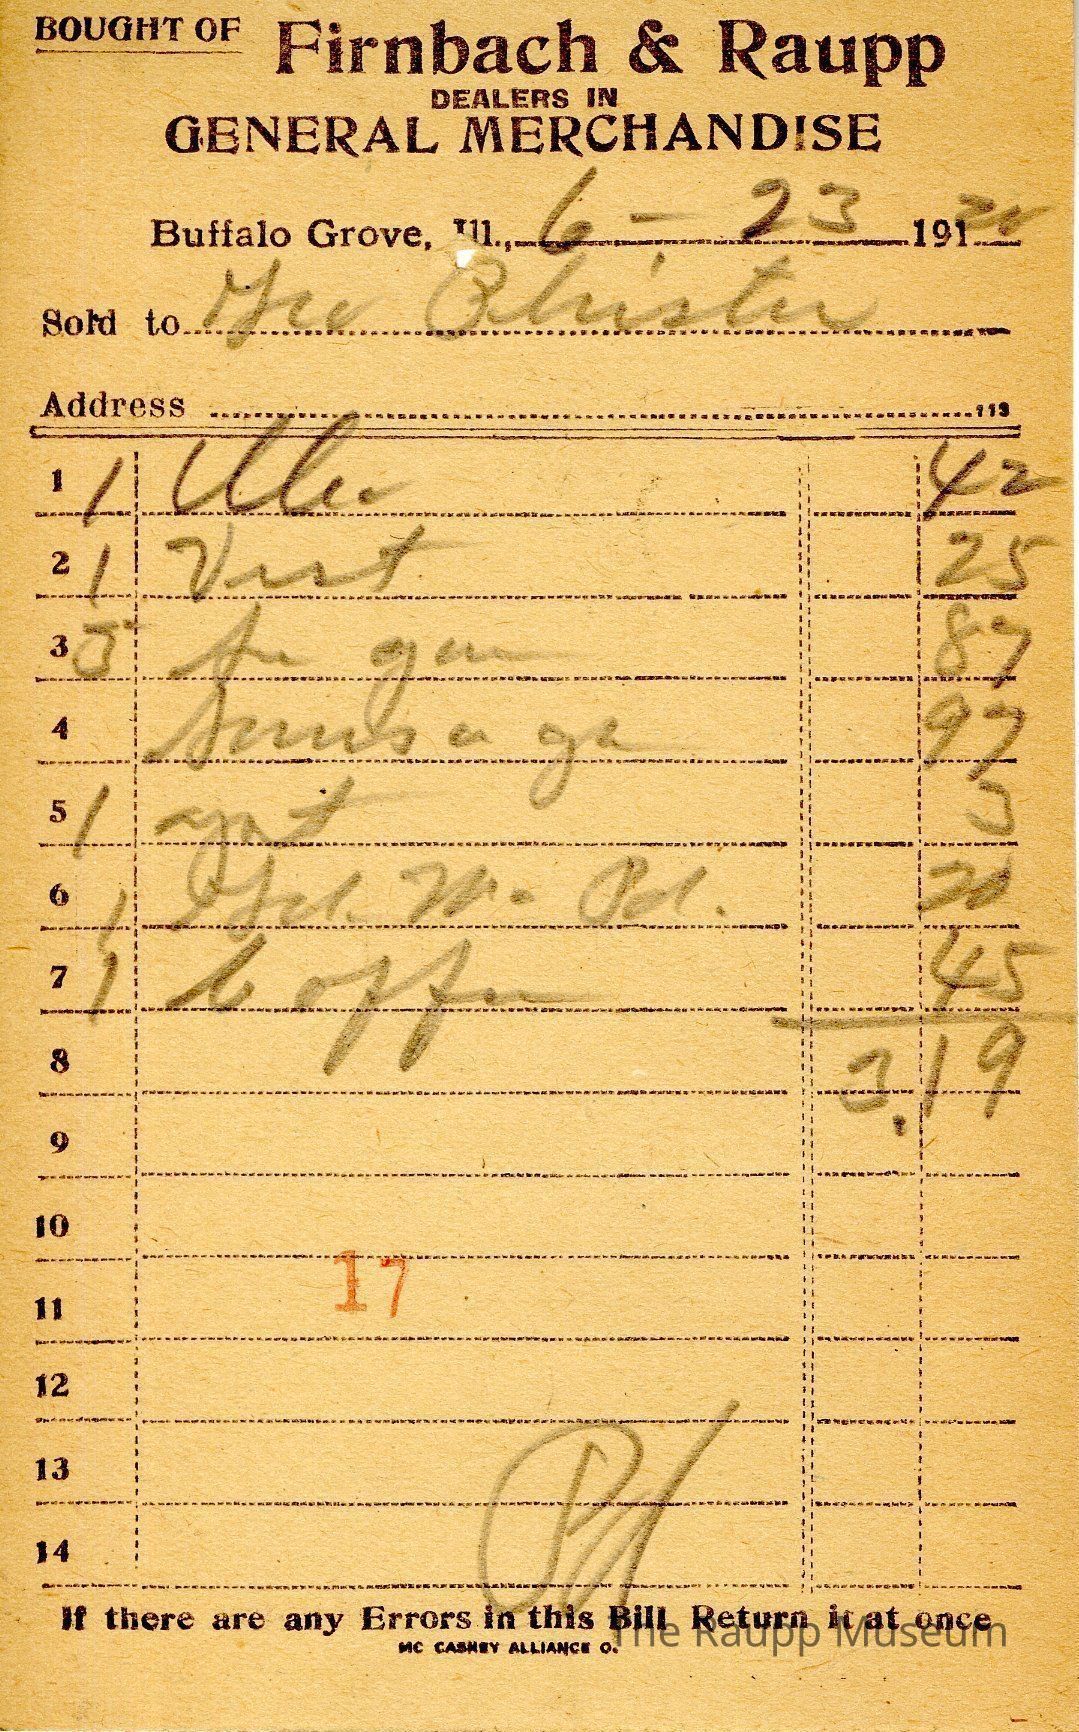 BOUGHT OF Firnbach & Raupp
DEALERS IN
GENERAL MERCHANDISE
Buffalo Grove, Ill., 6 - 23 191 20
Sold to Geo
Address 113
1 1 42
2 1 25
3 5 87
4 Sausage 97
5 1 3
6 1 20
7 1 Coffee 45
8 3.19
9
10
11 17
12
13
14 Pd
If there are any Errors in this Bill Return it at once
MC CASKEY ALLIANCE O.
The Raupp Museum